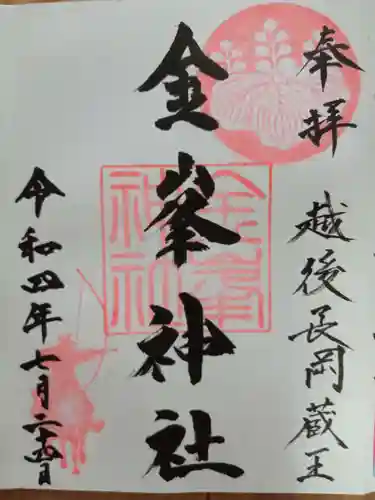 奉拝
越後長岡蔵王
金峯神社
金峯神社
令和四年七月二十四日